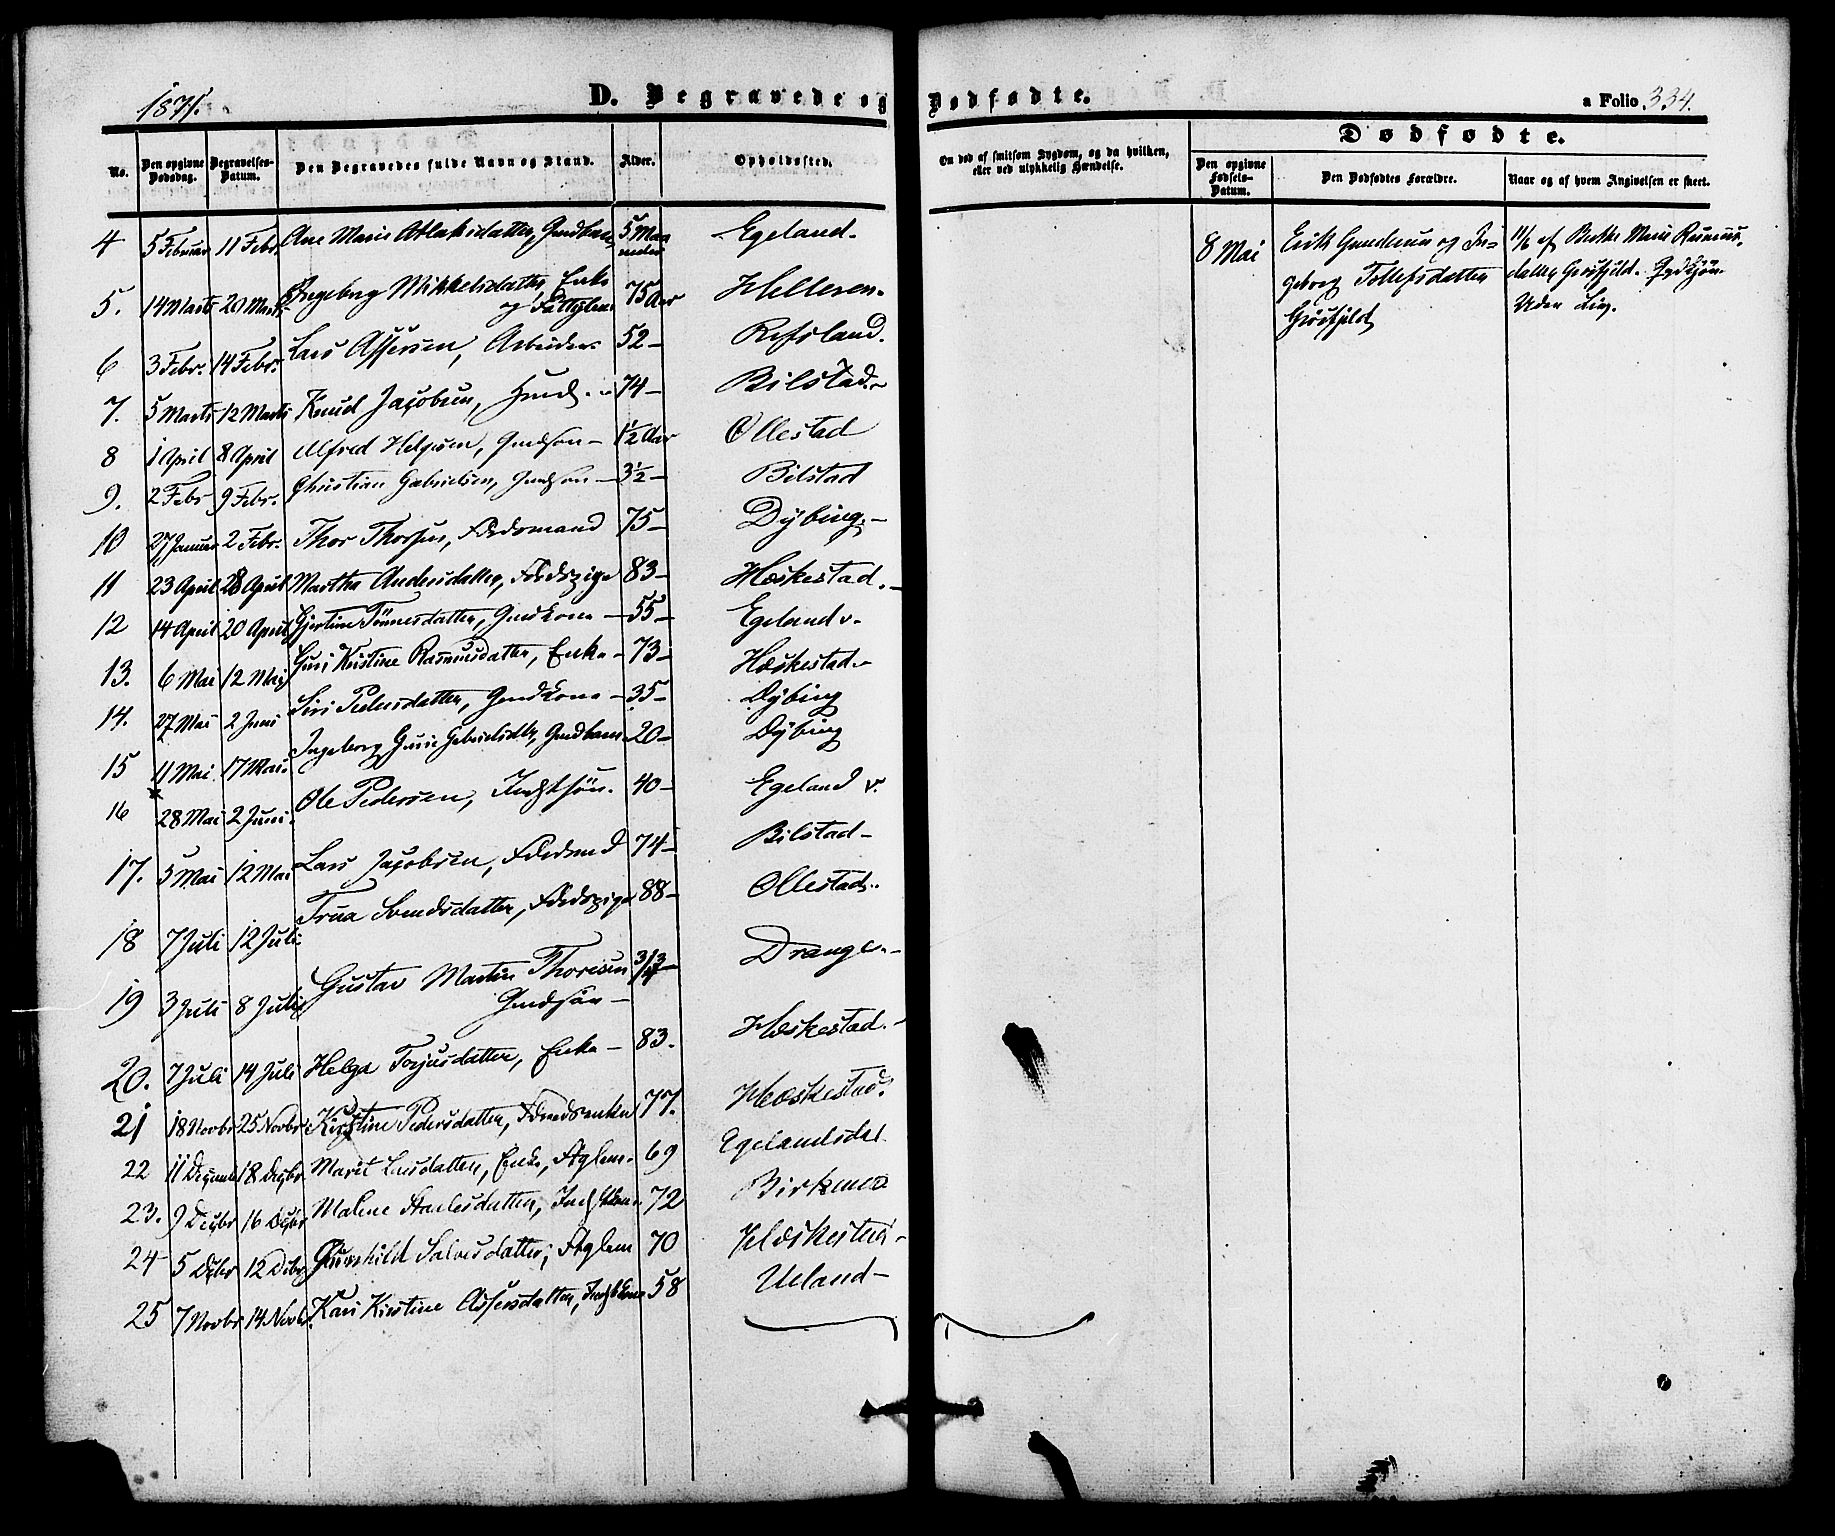 1871.
D. Begravede og Dødfødte.
a Folio 334.
No. Den opgivne Dødsdag. Begravelses-Datum. Den Begravedes fulde Navn og Stand. Alder. Opholdssted.
On død af smitsom Sygdom, og da hvilken, eller ved ulykkelig Hændelse.
Dødfødte.
Den opgivne Fødsels-Datum. Den Dødfødtes Forældre. Naar og af hvem Angivelsen er skeet.
4 5 Februar 11 Febr. Ane Marie Atlaksdatter, 5 Maaneder Egeland.
5. 14 Marts 20 Marts Ingeborg Mikkelsdatter, Enke 75 Aar Helleren.
og Fattiglem
6 3 Febr. 14 Febr. Lars Assersen, Arbeider 52 - Refsland.
7. 5 Marts 12 Marts Knud Jacobsen, 74 - Bilstad
8 1 April 8 April Alfred Helgesen, Gmdsøn - 1½ Aar Ollestad
9. 2 Febr 9 Febr. Christian Gabrielsen, Gmdsøn - 3½ - Bilstad
10 27 Januar 2 Febr. Thor Thorsen, Fødermand 75 - Dybing -
11 23 April 28 April Martha Andersdatter, 83 - Hæskestad. -
12 14 April 20 April Gjertine Tønnesdatter, Gmdkone - 55 - Egeland v.
13. 6 Mai 12 Mai Guri Kristine Rasmusdatter, Enke - 73 - Hæskestad -
14. 27 Mai 2 Juni Siri Pedersdatter, Gmdkone - 35 - Dybing
15 11 Mai 17 Mai. Ingeborg Gurie Gabrielsdtr, Gmdbarn 20 - Dybing
16 28 Mai 2 Juni. Ole Pedersen, 40 - Egeland v.
17. 5 Mai 12 Mai Lars Jacobsen, 74 - Bilstad -
18 7 Juli 12 Juli Svendsdatter, 88 - Ollestad.
19 3 Juli 8 Juli Gustav Martin Thoresen Drange. -
Gmdsøn -
20. 7 Juli 14 Juli Helga Torjusdatter, Enke - 83. Hæskestad. -
21 18 Novbr 25 Novbr Kirstine Pedersdatter, 77. Hæskestad.
22 11 18 Decbr Marit Larsdatter, Enke, Ftglem. 69 Egelandsdal
23. 9 Decbr 16 Decbr Malene 72 Birkemo
24 - 5 Dcbr 12 Dcbr Gunhild Salvesdatter, Ftglem 70 Hæskestad -
25 7 Novbr 14 Novbr. Kari Kirstine Assersdatter, 58 Ueland -
8 Mai Erik Gundersen og In= 11/6 af Berthe Marie Rasmus-
geborg Tollefsdatter datter
Uden Liv.